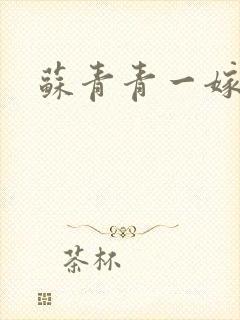 蘇青青一嫁
茶杯